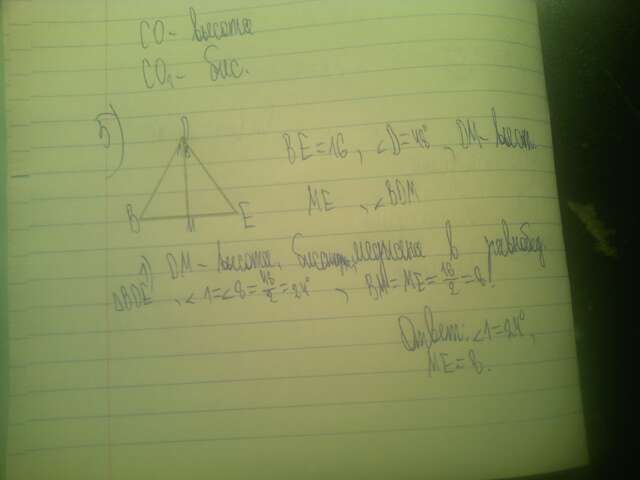 CO - высота
CO₁ - бис.
5)
D
BE=16, ∠D=48°, DM - высот.
ME, ∠BDM
B M E
1) DM - высота, биссектр., медиана в равнобед.
△BDE, ∠1=∠8=48/2=24°, BM=ME=16/2=8.
Ответ: ∠1=24°,
ME=8.